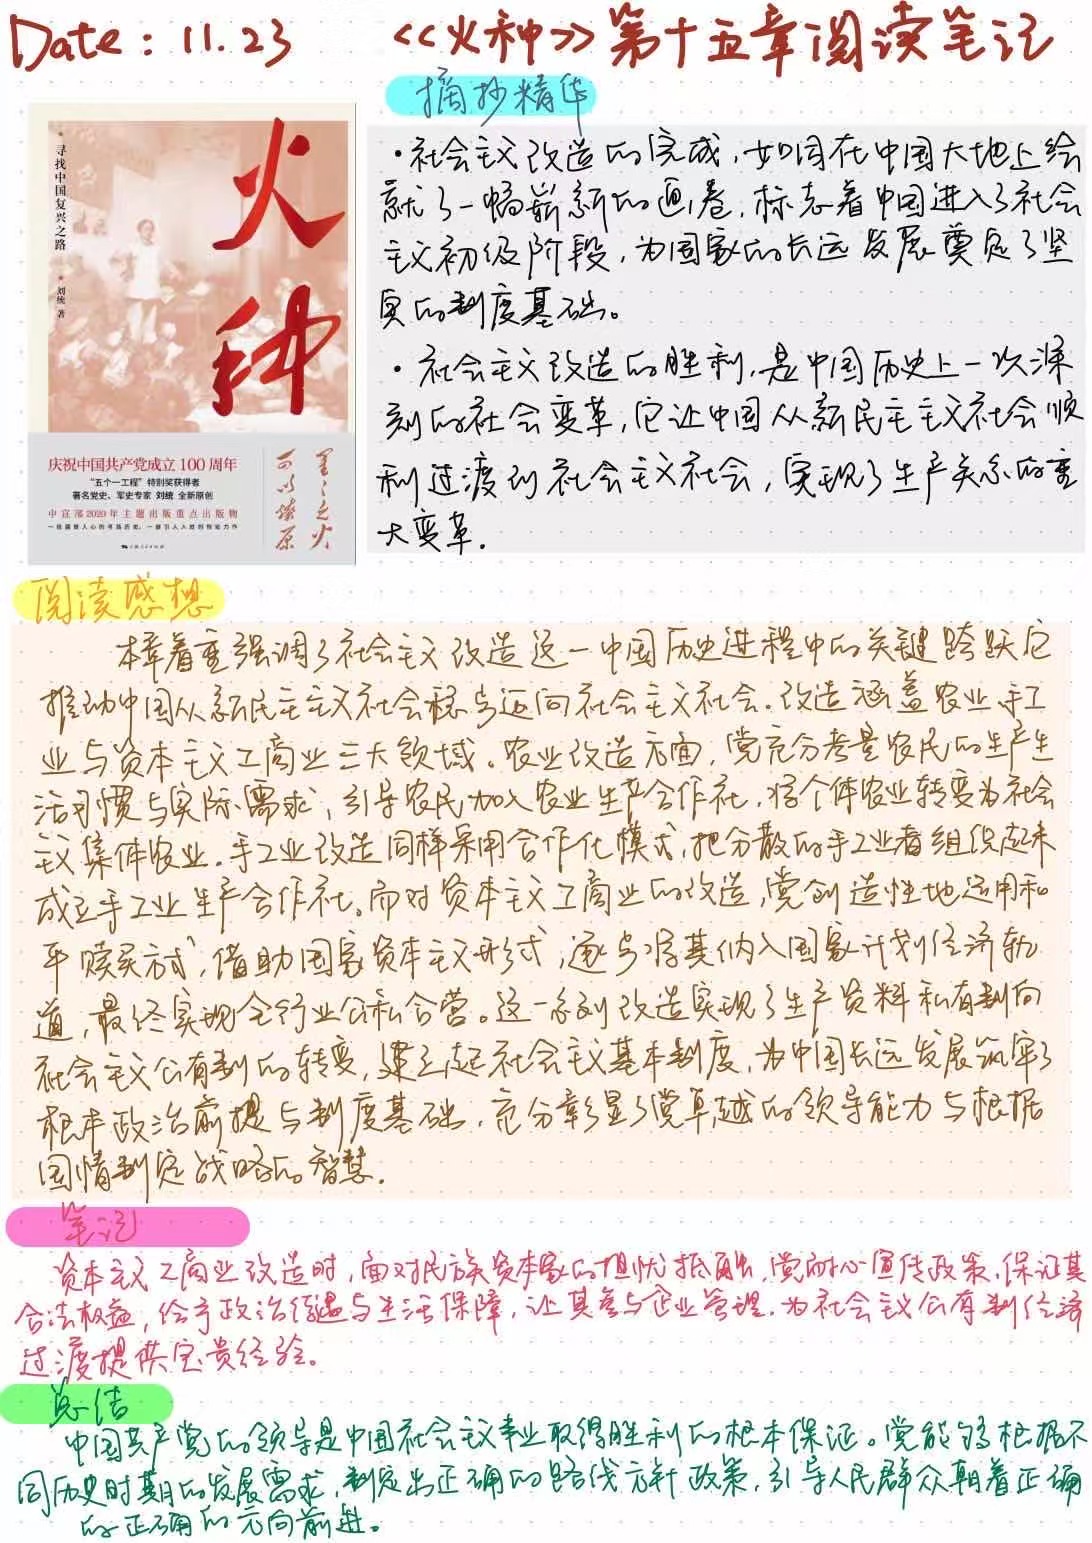 Date：11.23 《火种》第十五章阅读笔记
摘抄精华
·社会主义改造的完成，如同在中国大地上绘
就了一幅崭新的画卷，标志着中国进入了社会
主义初级阶段，为国家的长远发展奠定了坚
实的制度基础。
·社会主义改造的胜利，是中国历史上一次深
刻的社会变革，它让中国从新民主主义社会顺
利过渡到社会主义社会，实现了生产关系的重
大变革.
火种
寻找中国复兴之路
刘统 著
庆祝中国共产党成立100周年
“五个一工程”特别奖获得者
著名党史、军史专家 刘统 全新原创
中宣部2020年主题出版重点出版物
星星之火
可以燎原
阅读感想
本章着重强调了社会主义改造这一中国历史进程中的关键跨跃它
推动中国从新民主主义社会稳步迈向社会主义社会.改造涵盖农业、手工
业与资本主义工商业三大领域。农业改造方面，党充分考量农民的生产生
活习惯与实际需求，引导农民加入农业生产合作社，将个体农业转变为社会
主义集体农业.手工业改造同样采用合作化模式，把分散的手工业者组织起来
成立手工业生产合作社。而对资本主义工商业的改造，党创造性地运用和
平赎买方式，借助国家资本主义形式，逐步将其纳入国家计划经济轨
道，最终实现全行业公私合营。这一系列改造实现了生产资料私有制向
社会主义公有制的转变，建立起社会主义基本制度，为中国长远发展筑牢了
根本政治前提与制度基础，充分彰显了党卓越的领导能力与根据
国情制定战略的智慧.
笔记
资本主义工商业改造时，面对民族资本家的担忧抵触，党耐心宣传政策，保证其
合法权益，给予政治待遇与生活保障，让其参与企业管理，为社会主义公有制经济
过渡提供宝贵经验。
总结
中国共产党的领导是中国社会主义事业取得胜利的根本保证。党能够根据不
同历史时期的发展需求，制定出正确的路线方针政策，引导人民群众朝着正确
的正确的方向前进。